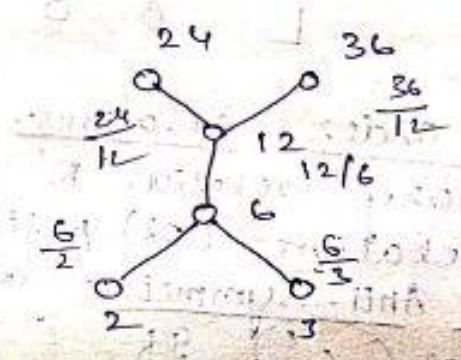 24 36
24/12 36/12
12
12/6
6
6/2 6/3
2 3